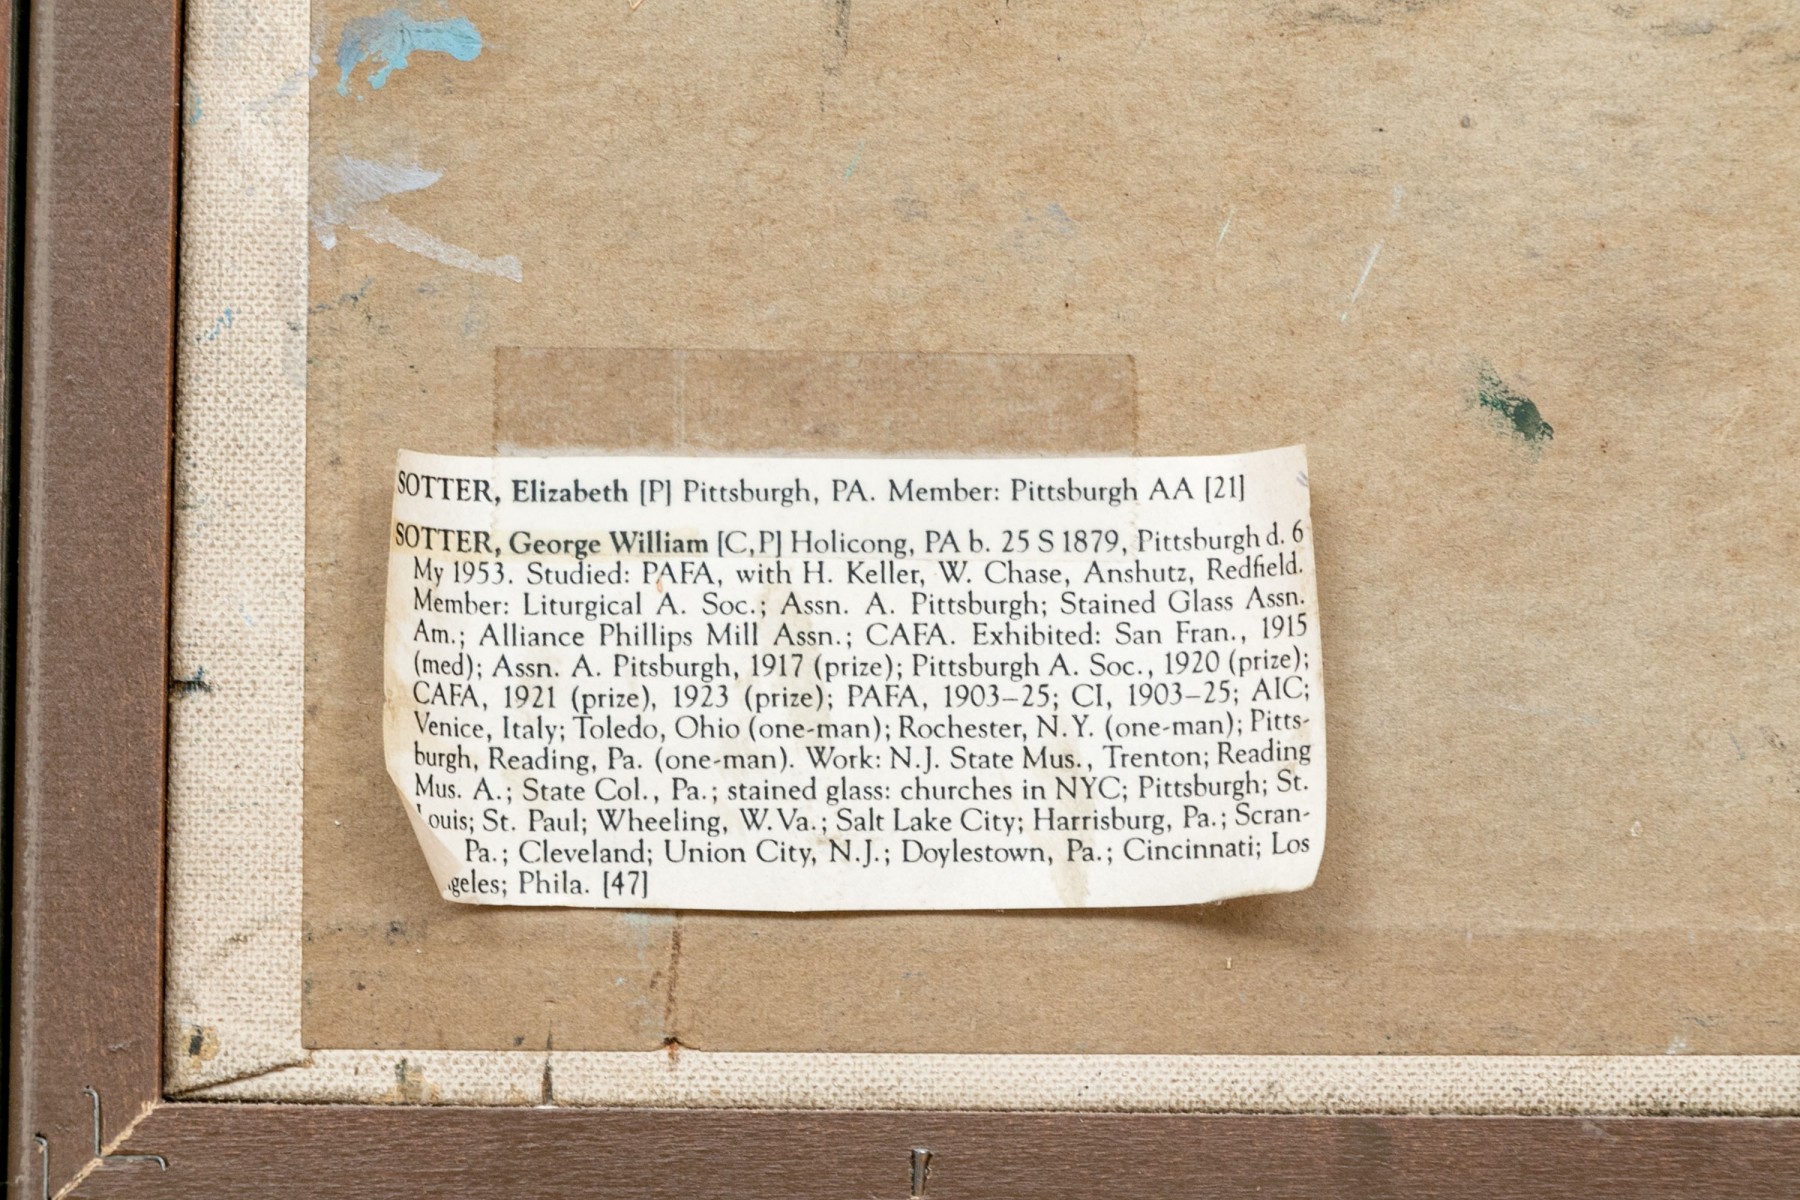 SOTTER, Elizabeth [P] Pittsburgh, PA. Member: Pittsburgh AA [21]
SOTTER, George William [C,P] Holicong, PA b. 25 S 1879, Pittsburgh d. 6
My 1953. Studied: PAFA, with H. Keller, W. Chase, Anshutz, Redfield.
Member: Liturgical A. Soc.; Assn. A. Pittsburgh; Stained Glass Assn.
Am.; Alliance Phillips Mill Assn.; CAFA. Exhibited: San Fran., 1915
(med); Assn. A. Pitsburgh, 1917 (prize); Pittsburgh A. Soc., 1920 (prize);
CAFA, 1921 (prize), 1923 (prize); PAFA, 1903–25; CI, 1903–25; AIC;
Venice, Italy; Toledo, Ohio (one-man); Rochester, N.Y. (one-man); Pitts-
burgh, Reading, Pa. (one-man). Work: N.J. State Mus., Trenton; Reading
Mus. A.; State Col., Pa.; stained glass: churches in NYC; Pittsburgh; St.
ouis; St. Paul; Wheeling, W.Va.; Salt Lake City; Harrisburg, Pa.; Scran-
Pa.; Cleveland; Union City, N.J.; Doylestown, Pa.; Cincinnati; Los
geles; Phila. [47]